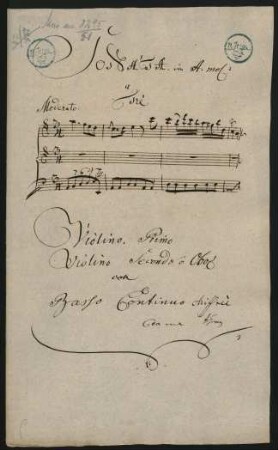 Sonata. in A. mol:
a
Tre
Moderato.
Violino. Primo
Violino Secondo ò Oboe
con
Basso Continuo chifre